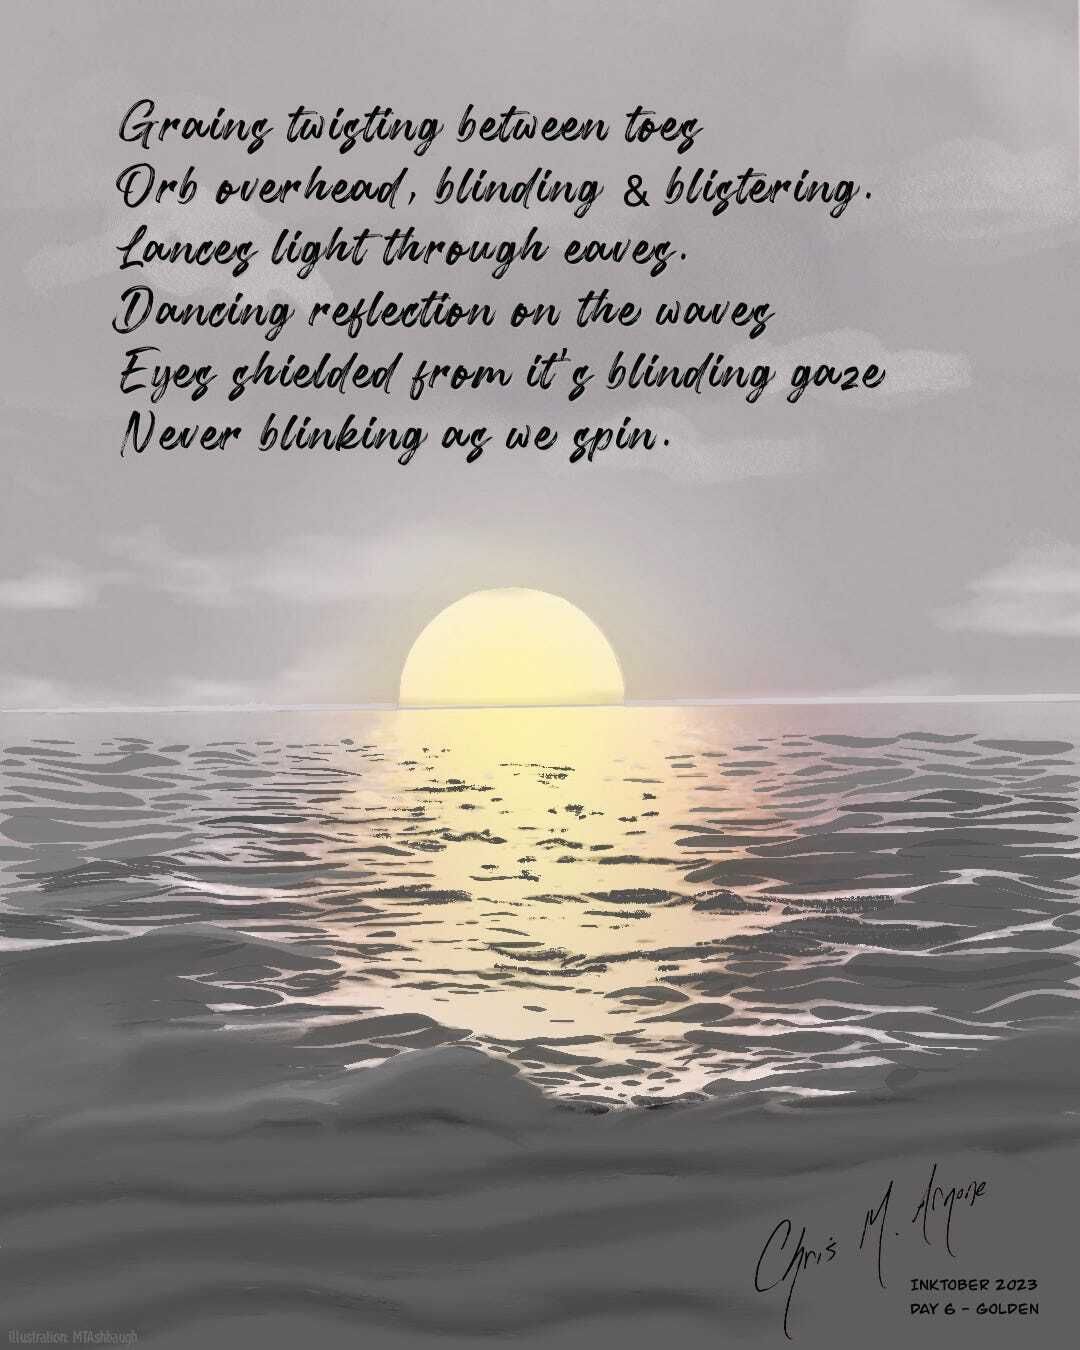 Grains twisting between toes
Orb overhead, blinding & blistering.
Lances light through eaves.
Dancing reflection on the waves
Eyes shielded from it's blinding gaze
Never blinking as we spin.
Chris M. Arnone
INKTOBER 2023
DAY 6 - GOLDEN
Illustration: MTAshbaugh